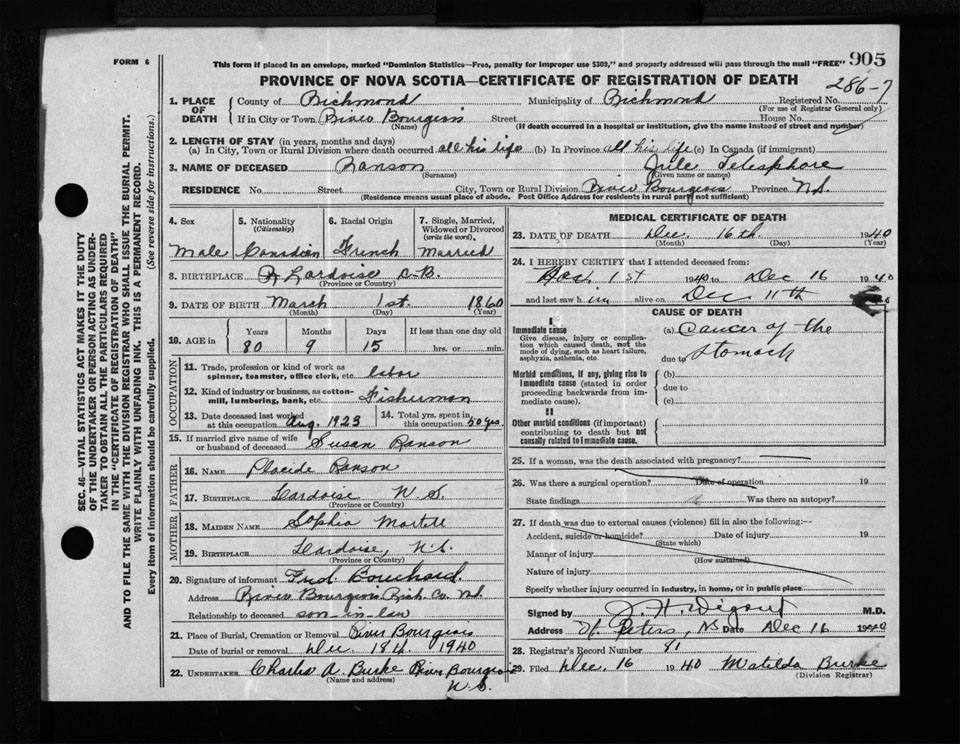 FORM 6
This form if placed in an envelope, marked "Dominion Statistics—Free, penalty for improper use $300," and properly addressed will pass through the mail "FREE" 905
PROVINCE OF NOVA SCOTIA—CERTIFICATE OF REGISTRATION OF DEATH
286-7
SEC. 46—VITAL STATISTICS ACT MAKES IT THE DUTY
OF THE UNDERTAKER OR PERSON ACTING AS UNDER-
TAKER TO OBTAIN ALL THE PARTICULARS REQUIRED
IN THE "CERTIFICATE OF REGISTRATION OF DEATH"
AND TO FILE THE SAME WITH THE DIVISION REGISTRAR WHO SHALL ISSUE THE BURIAL PERMIT.
WRITE PLAINLY WITH UNFADING INK. THIS IS A PERMANENT RECORD.
Every item of information should be carefully supplied. (See reverse side for instructions.)
1. PLACE OF DEATH County of Richmond Municipality of Richmond Registered No.
(For use of Registrar General only)
If in City or Town River Bourgeois Street House No.
(Name) (If death occurred in a hospital or institution, give the name instead of street and number)
2. LENGTH OF STAY (in years, months and days)
(a) In City, Town or Rural Division where death occurred all his life (b) In Province all his life (c) In Canada (if immigrant)
3. NAME OF DECEASED Ranson Jule Telesphore
(Surname) (Given name or names)
RESIDENCE No. Street City, Town or Rural Division River Bourgeois Province N.S.
(Residence means usual place of abode. Post Office Address for residents in rural parts not sufficient)
4. Sex 5. Nationality 6. Racial Origin 7. Single, Married,
(Citizenship) Widowed or Divorced
(write the word)
Male Canadian French Married
8. BIRTHPLACE Lardoise C.B.
(Province or Country)
9. DATE OF BIRTH March 1st 1860
(Month) (Day) (Year)
10. AGE in Years Months Days If less than one day old
80 9 15 hrs. or min.
OCCUPATION
11. Trade, profession or kind of work as
spinner, teamster, office clerk, etc. labor
12. Kind of industry or business, as cotton-
mill, lumbering, bank, etc. Fisherman
13. Date deceased last worked 14. Total yrs. spent in
at this occupation Aug. 1923 this occupation 50 yrs.
15. If married give name of wife
or husband of deceased Susan Ranson
FATHER
16. NAME Placide Ranson
17. BIRTHPLACE Lardoise N.S.
(Province or Country)
MOTHER
18. MAIDEN NAME Sophia Martell
19. BIRTHPLACE Lardoise, N.S.
(Province or Country)
20. Signature of informant Fred. Bouchard.
Address River Bourgeois Rich. Co. N.S.
Relationship to deceased son-in-law
21. Place of Burial, Cremation or Removal River Bourgeois
Date of burial or removal Dec. 18th 1940
22. UNDERTAKER Charles A. Burke River Bourgeois
(Name and address) N.S.
MEDICAL CERTIFICATE OF DEATH
23. DATE OF DEATH Dec. 16th. 1940
(Month) (Day) (Year)
24. I HEREBY CERTIFY that I attended deceased from:
1st 1940 to Dec 16 1940
and last saw h im alive on Dec 11th
CAUSE OF DEATH
I
Immediate cause (a) Cancer of the
Give disease, injury or complica-
tion which caused death, not the
mode of dying, such as heart failure,
asphyxia, asthenia, etc. due to Stomach
Morbid conditions, if any, giving rise to (b)
immediate cause (stated in order due to
proceeding backwards from im-
mediate cause). (c)
II
Other morbid conditions (if important)
contributing to death but not
causally related to immediate cause.
25. If a woman, was the death associated with pregnancy?
26. Was there a surgical operation? Date of operation 19
State findings Was there an autopsy?
27. If death was due to external causes (violence) fill in also the following:—
Accident, suicide or homicide? Date of injury 19
(State which)
Manner of injury
(How sustained)
Nature of injury
Specify whether injury occurred in industry, in home, or in public place
Signed by M.D.
Address St. Peters, NS Date Dec 16 1940
28. Registrar's Record Number 81
29. Filed Dec. 16 1940 Matilda Burke
(Division Registrar)